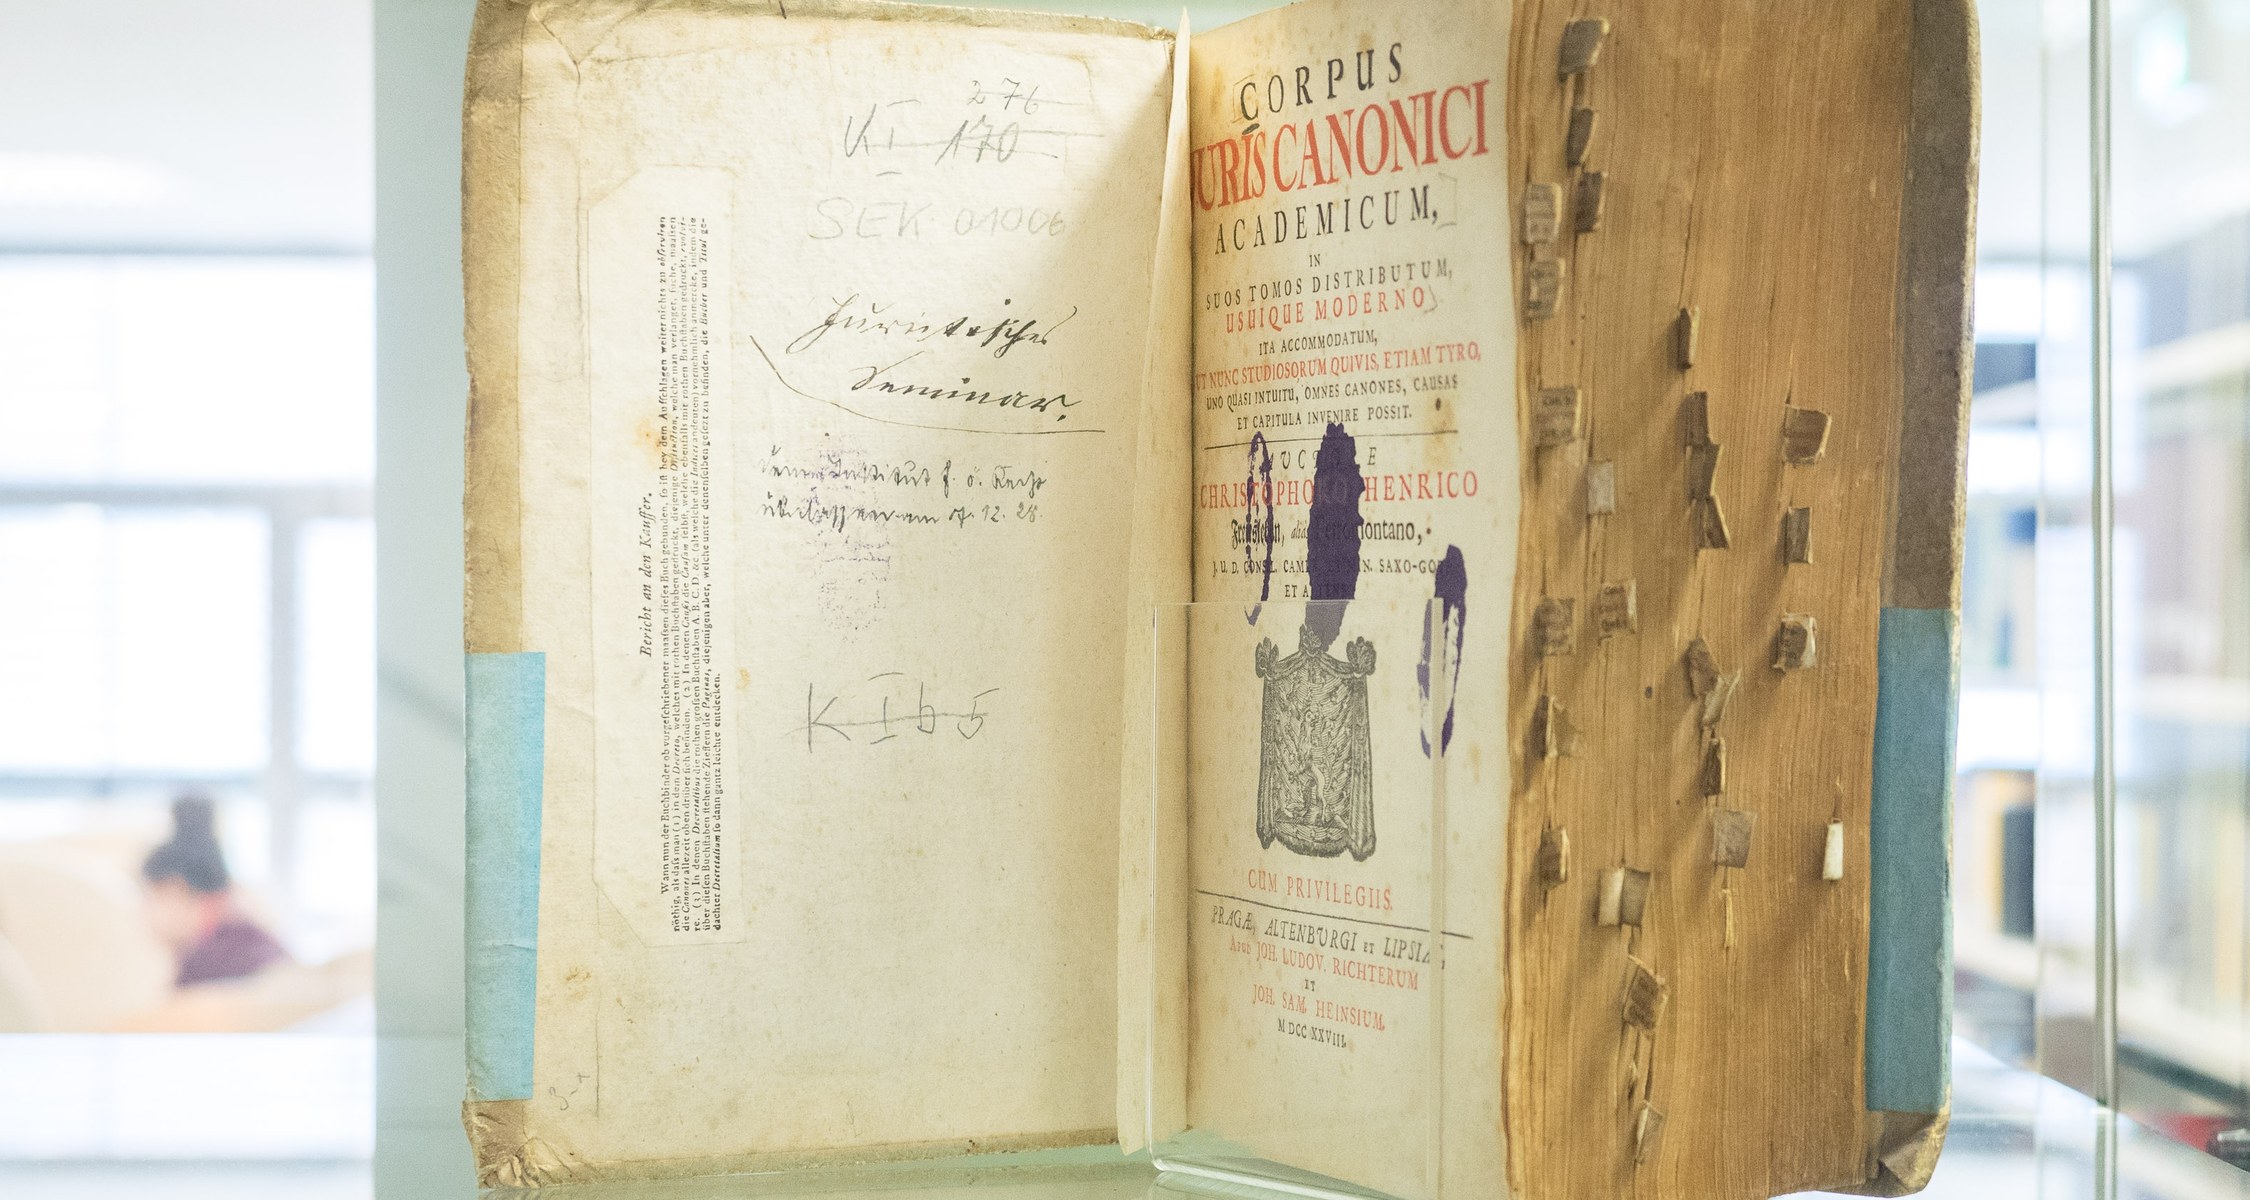 276
KI 170
SEK 01006
Juristisches
Seminar.
dem Institut f. ö. Recht
überlassen am 7. 12. 28.
K I b 5
Bericht an den Kauffer.
Wann nun der Buchbinder ob vorgeschriebener maßen dieses Buch gebunden, so ist bey dem Auffschlagen weiter nichts zu observiren
nöthig, als daß man (1) in dem Decreto, welches mit rothen Buchstaben gedruckt, diejenige Distinction, welche man verlanget, suche, maaßen
die Canones allezeit oben drüber sich befinden. (2) In denen Causis die Causam selbst, welche ebenfalls mit rothen Buchstaben gedruckt,
re. (3) In denen Decretalibus die rothen großen Buchstaben A. B. C. D. &c. (als welche die Indices andeuten) vornehmlich anmercke, indem die
über diesen Buchstaben stehende Zieffern die Paginas, diejenigen aber, welche unter denenselben gesetzt zu befinden, die Bücher und Titul ge-
dachter Decretalium so dann gantz leichte entdecken.
CORPUS
JURIS CANONICI
ACADEMICUM,
IN
SUOS TOMOS DISTRIBUTUM,
USUIQUE MODERNO
ITA ACCOMMODATUM,
UT NUNC STUDIOSORUM QUIVIS, ETIAM TYRO,
UNO QUASI INTUITU, OMNES CANONES, CAUSAS
ET CAPITULA INVENIRE POSSIT.
CHRISTOPHORO HENRICO
J. U. D. CONS. CAM. ET MIN. SAXO-GOTH
CUM PRIVILEGIIS.
PRAGÆ, ALTENBURGI ET LIPSIÆ,
Apud JOH. LUDOV. RICHTERUM
ET
JOH. SAM. HEINSIUM,
M DCC XXVIII.